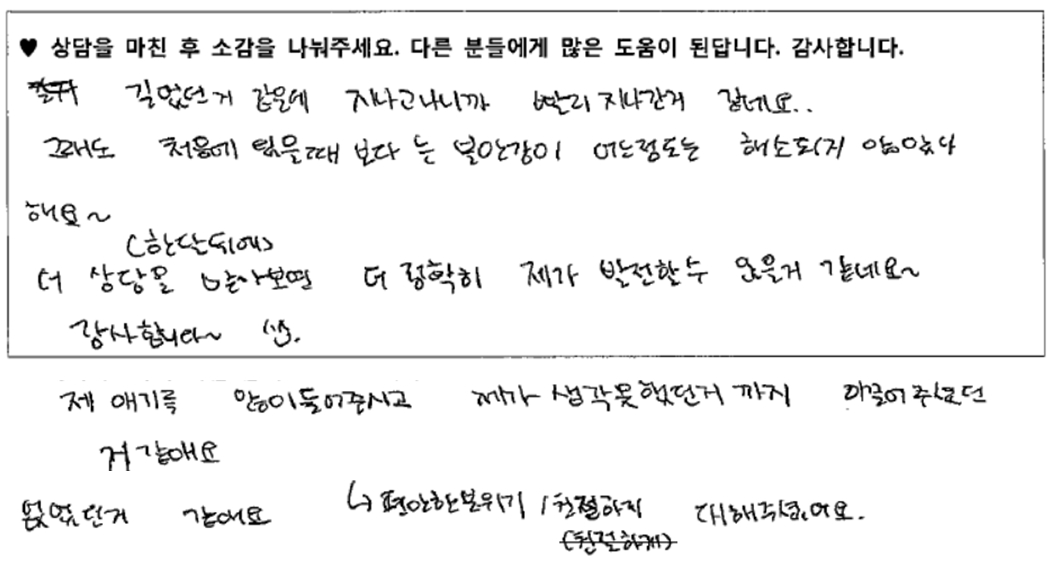 ♥ 상담을 마친 후 소감을 나눠주세요. 다른 분들에게 많은 도움이 된답니다. 감사합니다.
길었던거 같은데 지나고나니까 빨리 지나간거 같네요..
그래도 처음에 왔을때 보다 는 불안감이 어느정도는 해소되지 않았나
해요~
(한달뒤에)
더 상담을 받아보면 더 정확히 제가 발전할수 있을거 같네요~
감사합니다~
제 얘기를 많이들어주시고 제가 생각못했던거 까지 이끌어주셨던
거 같애요
없었던거 같애요 ↳ 편안한분위기 / 친절하지 대해주셨어요.
(친절하게)